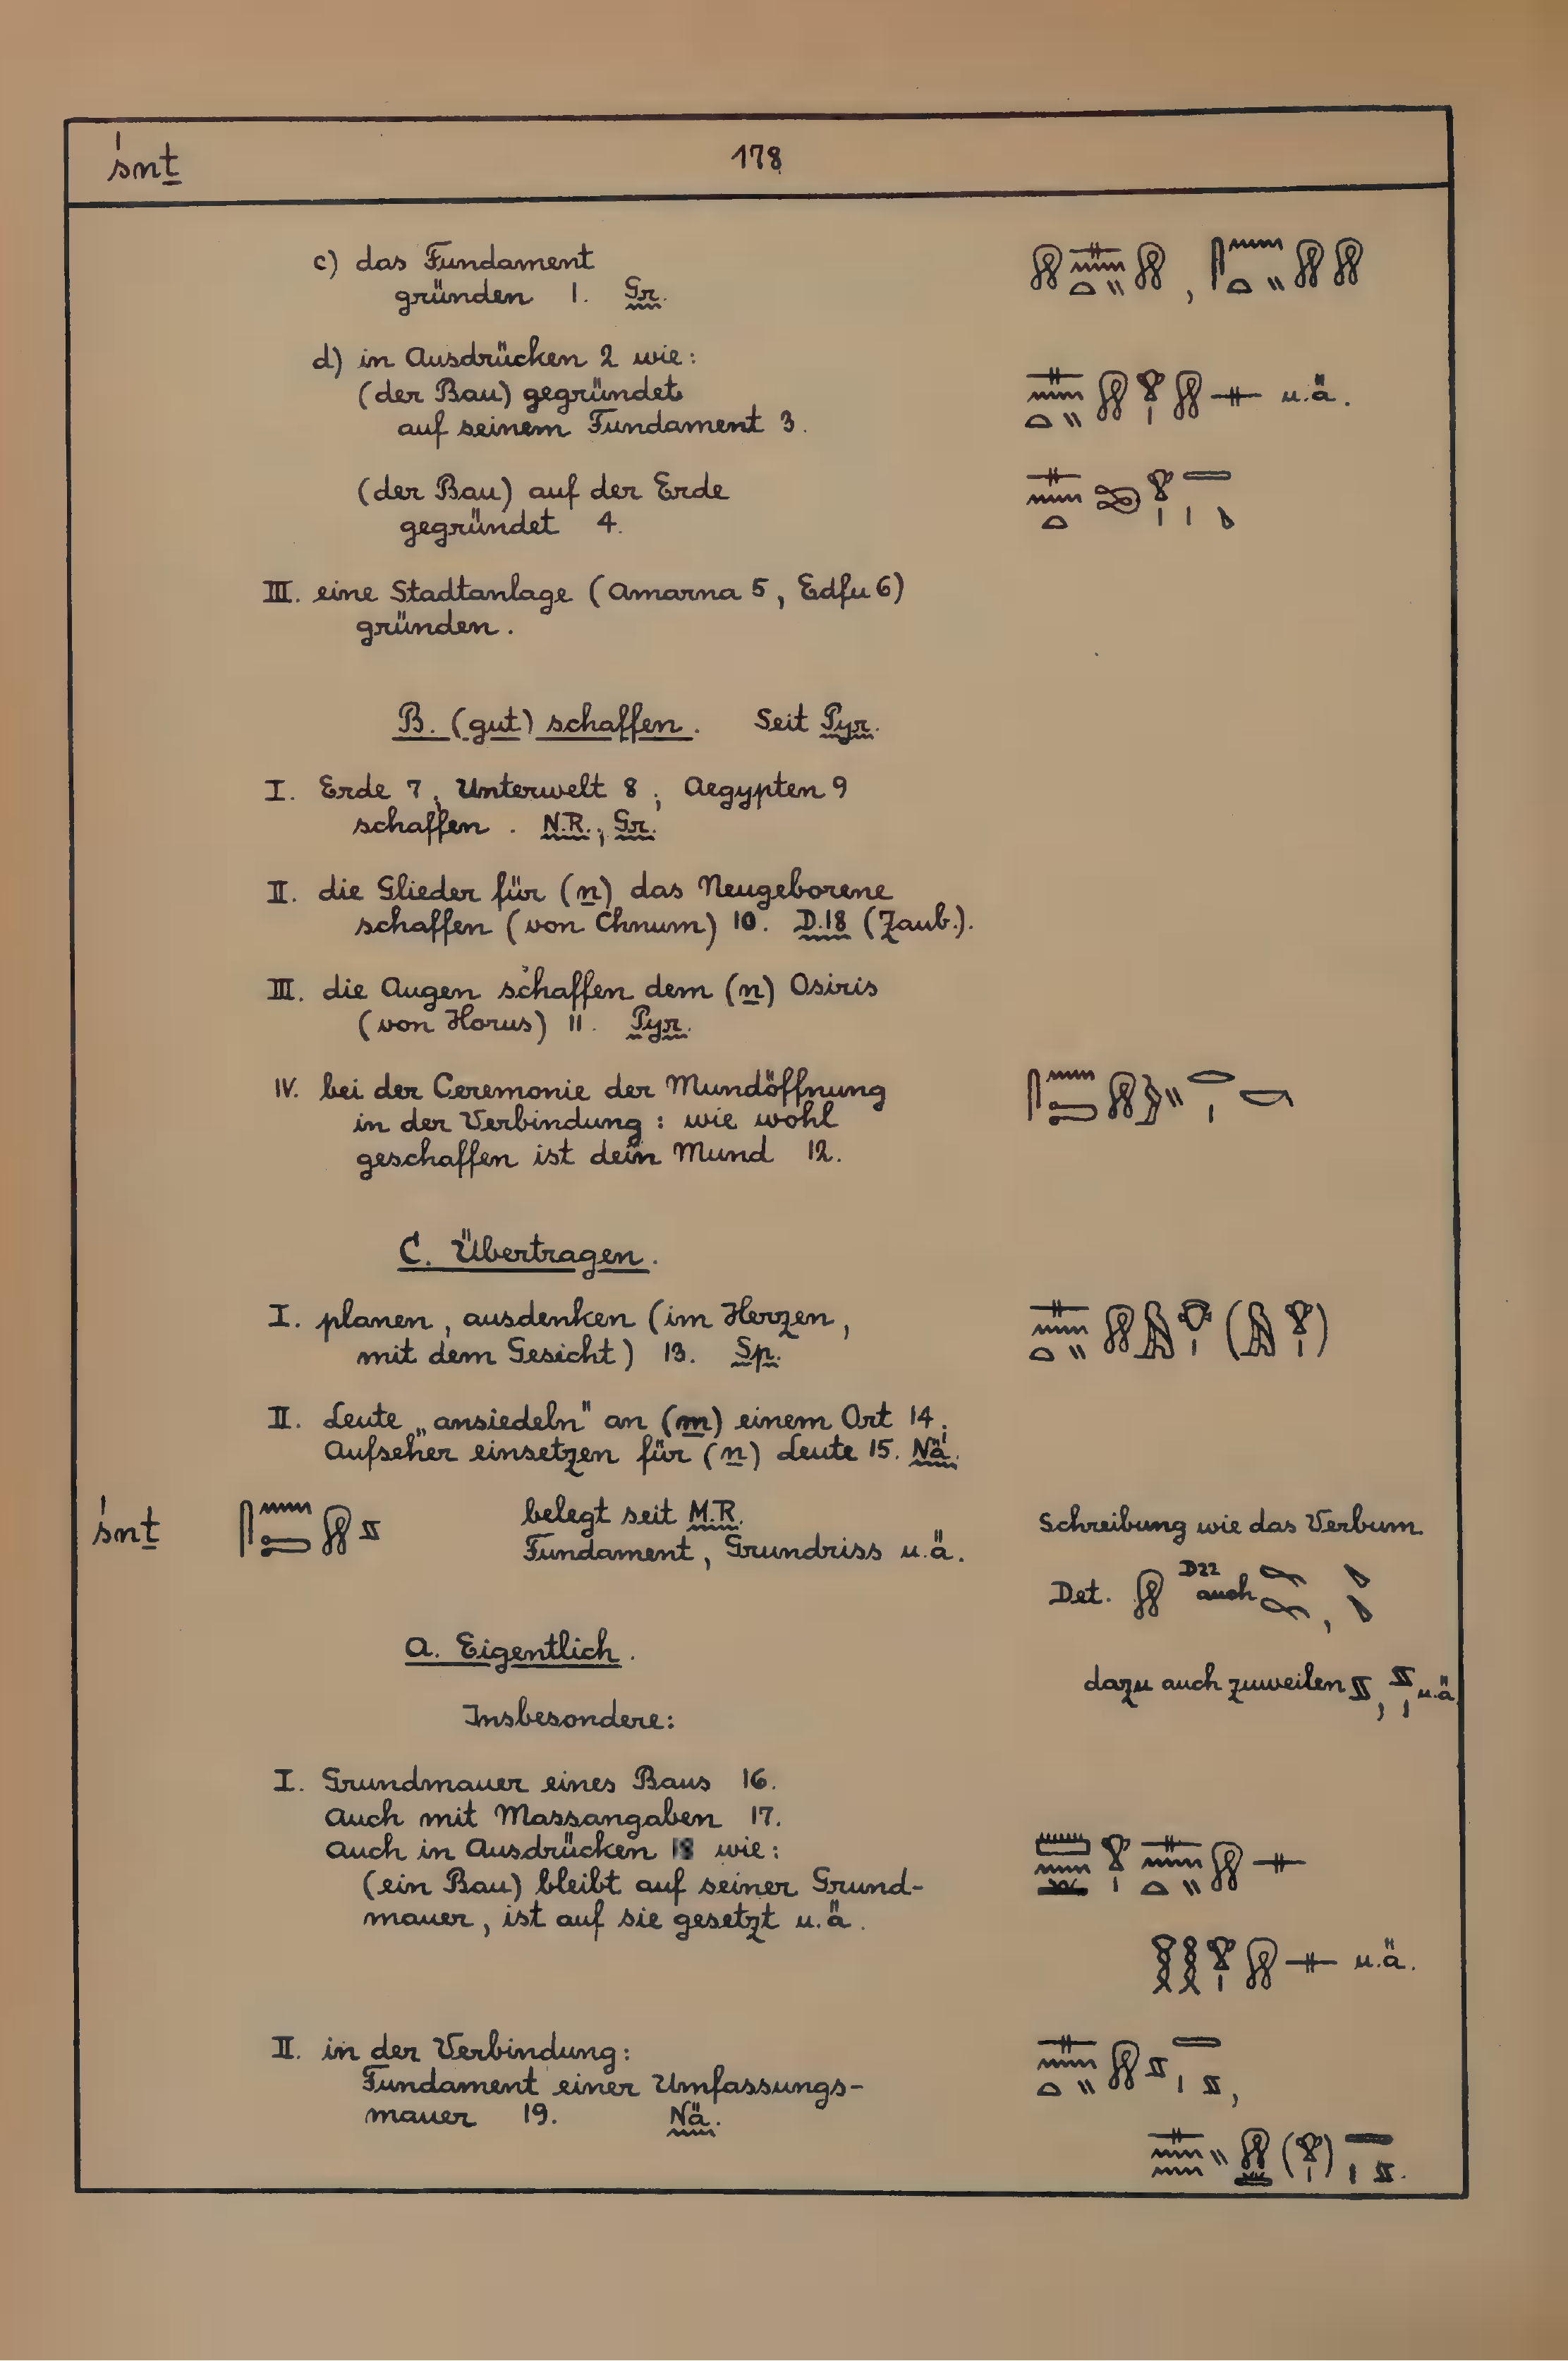 śnṯ
178
c) das Fundament
gründen 1. Gr.
d) in Ausdrücken 2 wie:
(der Bau) gegründet
auf seinem Fundament 3.
u.ä.
(der Bau) auf der Erde
gegründet 4.
III. eine Stadtanlage (Amarna 5, Edfu 6)
gründen.
B. (gut) schaffen. Seit Pyr.
I. Erde 7, Unterwelt 8, Aegypten 9
schaffen. N.R.; Gr.
II. die Glieder für (n) das Neugeborene
schaffen (von Chnum) 10. D.18 (Zaub.).
III. die Augen schaffen dem (n) Osiris
(von Horus) 11. Pyr.
IV. bei der Ceremonie der Mundöffnung
in der Verbindung: wie wohl
geschaffen ist dein Mund 12.
C. Übertragen.
I. planen, ausdenken (im Herzen,
mit dem Gesicht) 13. Sp.
II. Leute „ansiedeln" an (m) einem Ort 14.
Aufseher einsetzen für (n) Leute 15. Nä.
śnṯ
belegt seit M.R.
Fundament, Grundriss u.ä.
Schreibung wie das Verbum.
Det. D22 auch
dazu auch zuweilen u.ä.
A. Eigentlich.
Insbesondere:
I. Grundmauer eines Baus 16.
Auch mit Massangaben 17.
Auch in Ausdrücken 18 wie:
(ein Bau) bleibt auf seiner Grund-
mauer, ist auf sie gesetzt u.ä.
u.ä.
II. in der Verbindung:
Fundament einer Umfassungs-
mauer 19. Nä.